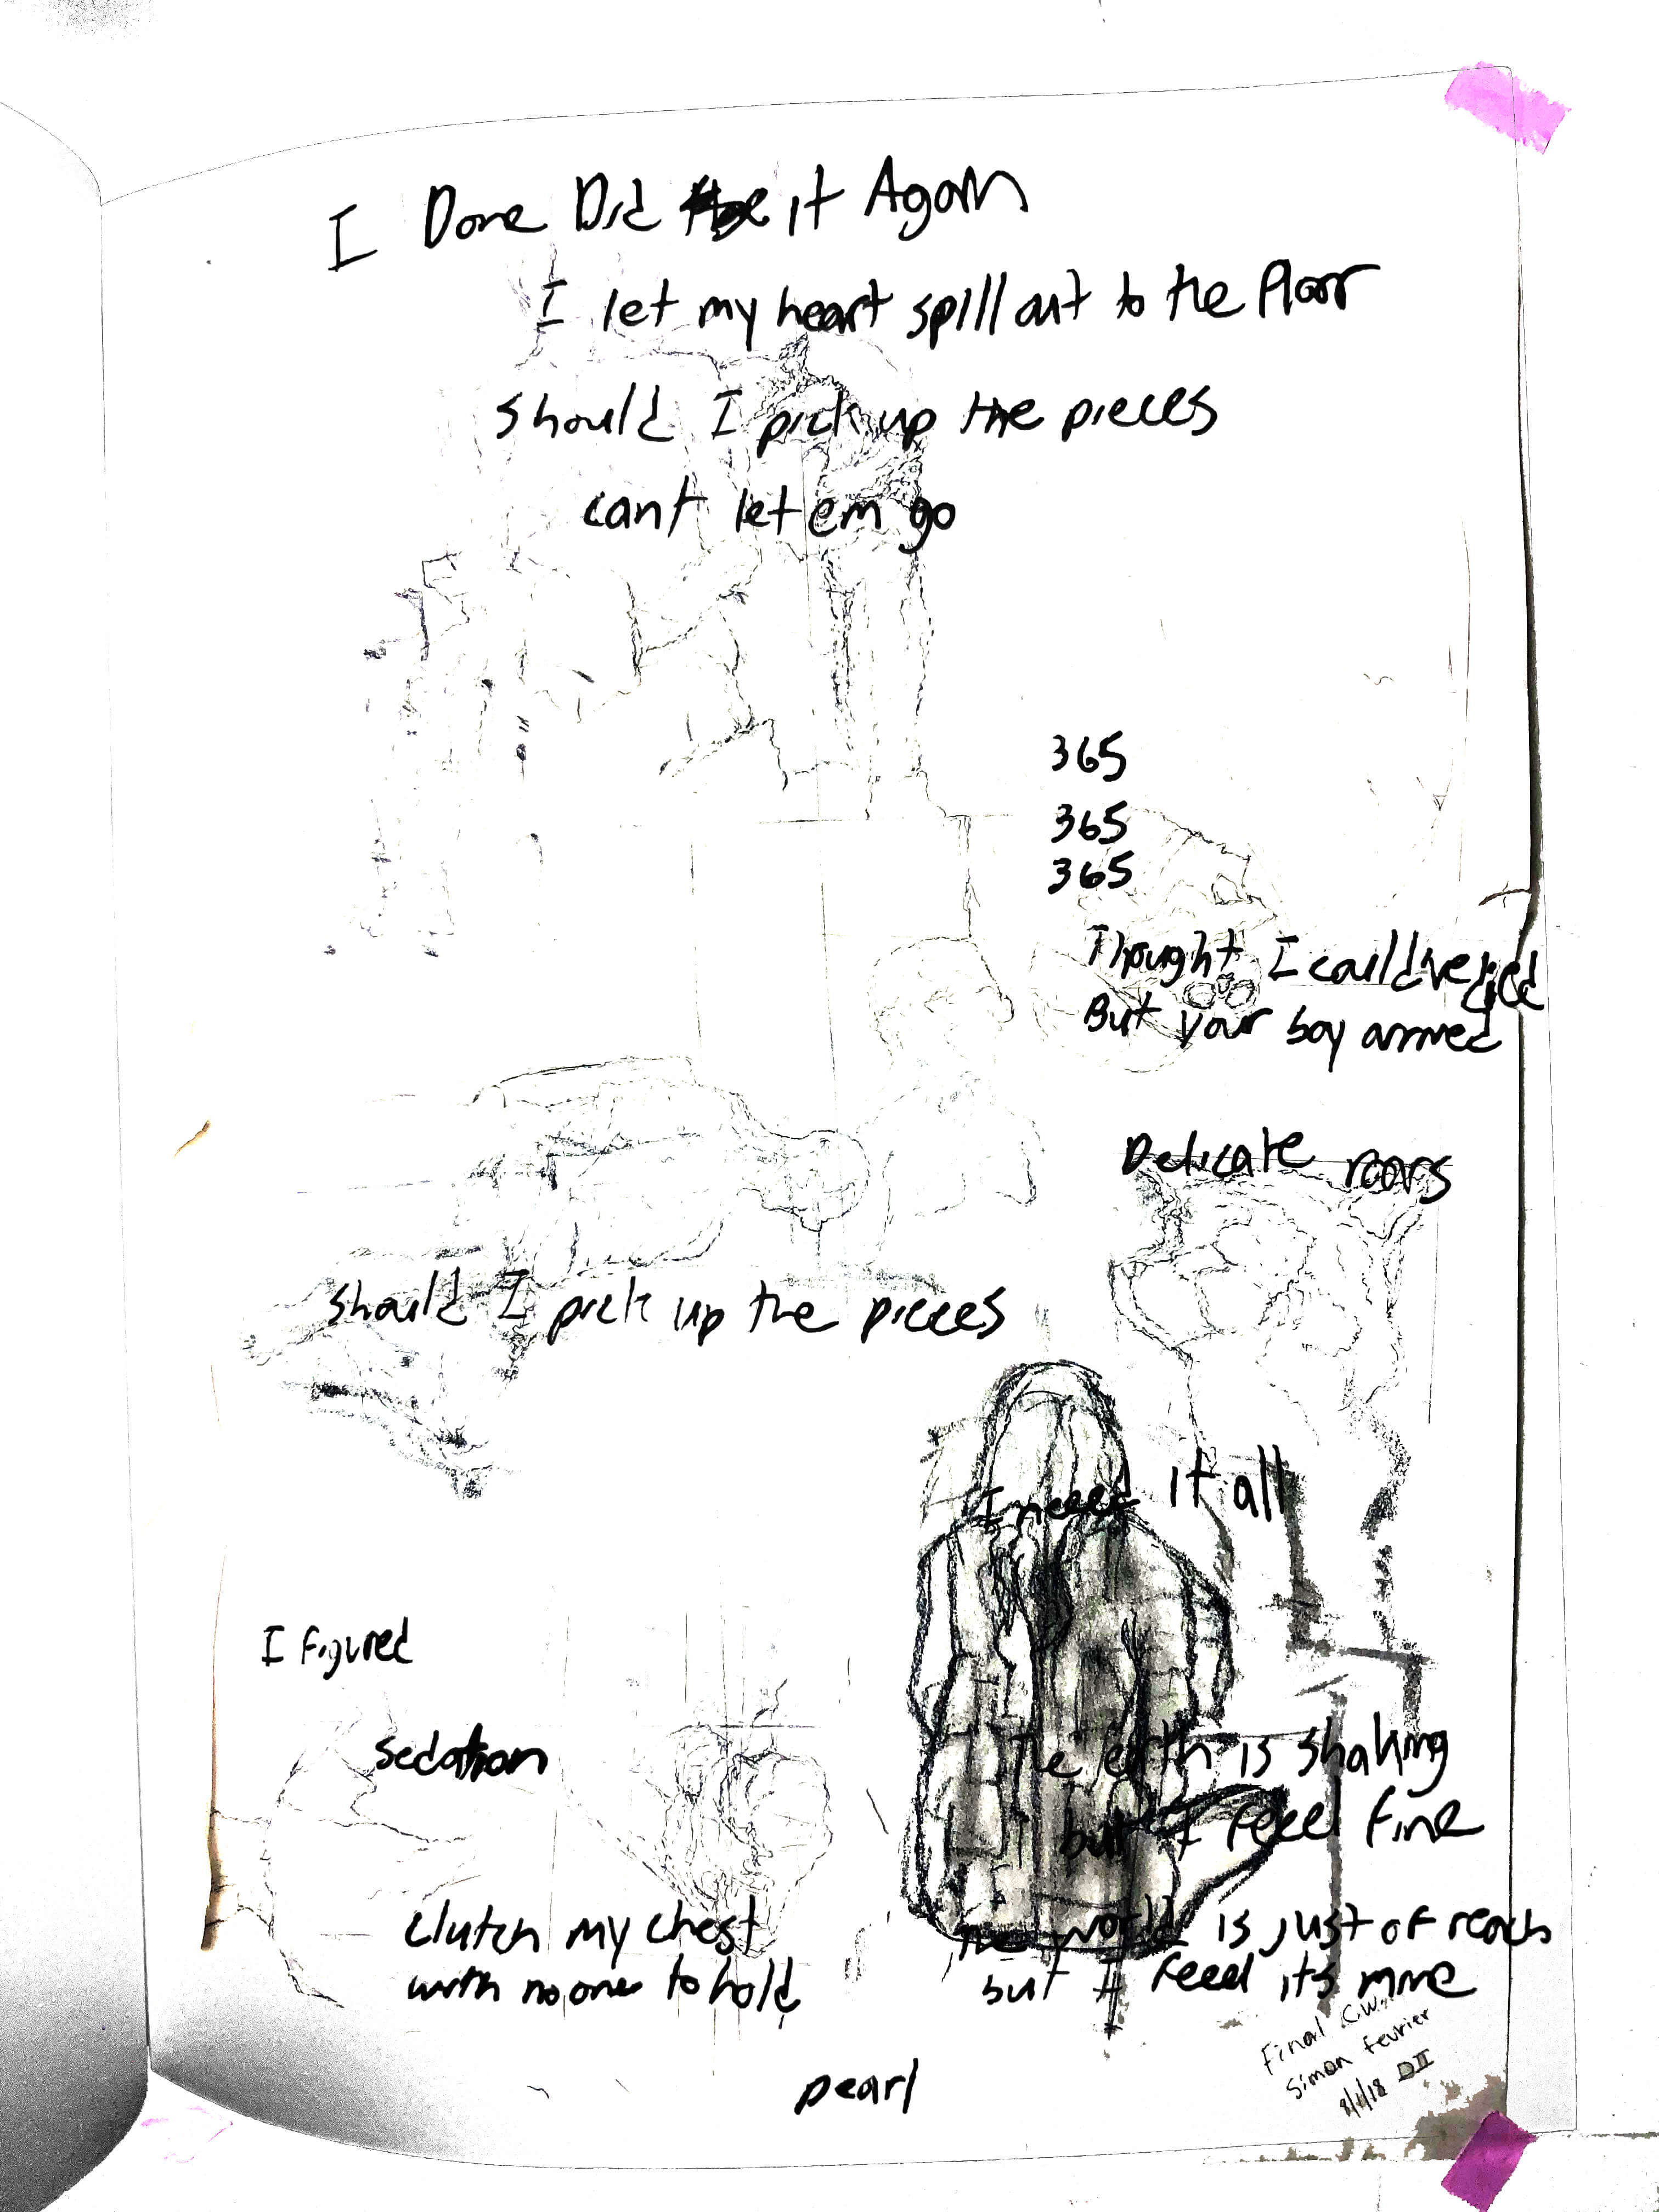 I Done Did it Again
I let my heart spill out to the floor
should I pick up the pieces
cant let em go
365
365
365
Thought I could've died
But your boy arrived
Delicate roars
should I pick up the pieces
I need it all
I figured
sedation
The earth is shaking
but I feel fine
clutch my chest
with no one to hold
The world is just of reach
but I feel its mine
Final C.W.
Simon Fevrier
DII
pearl